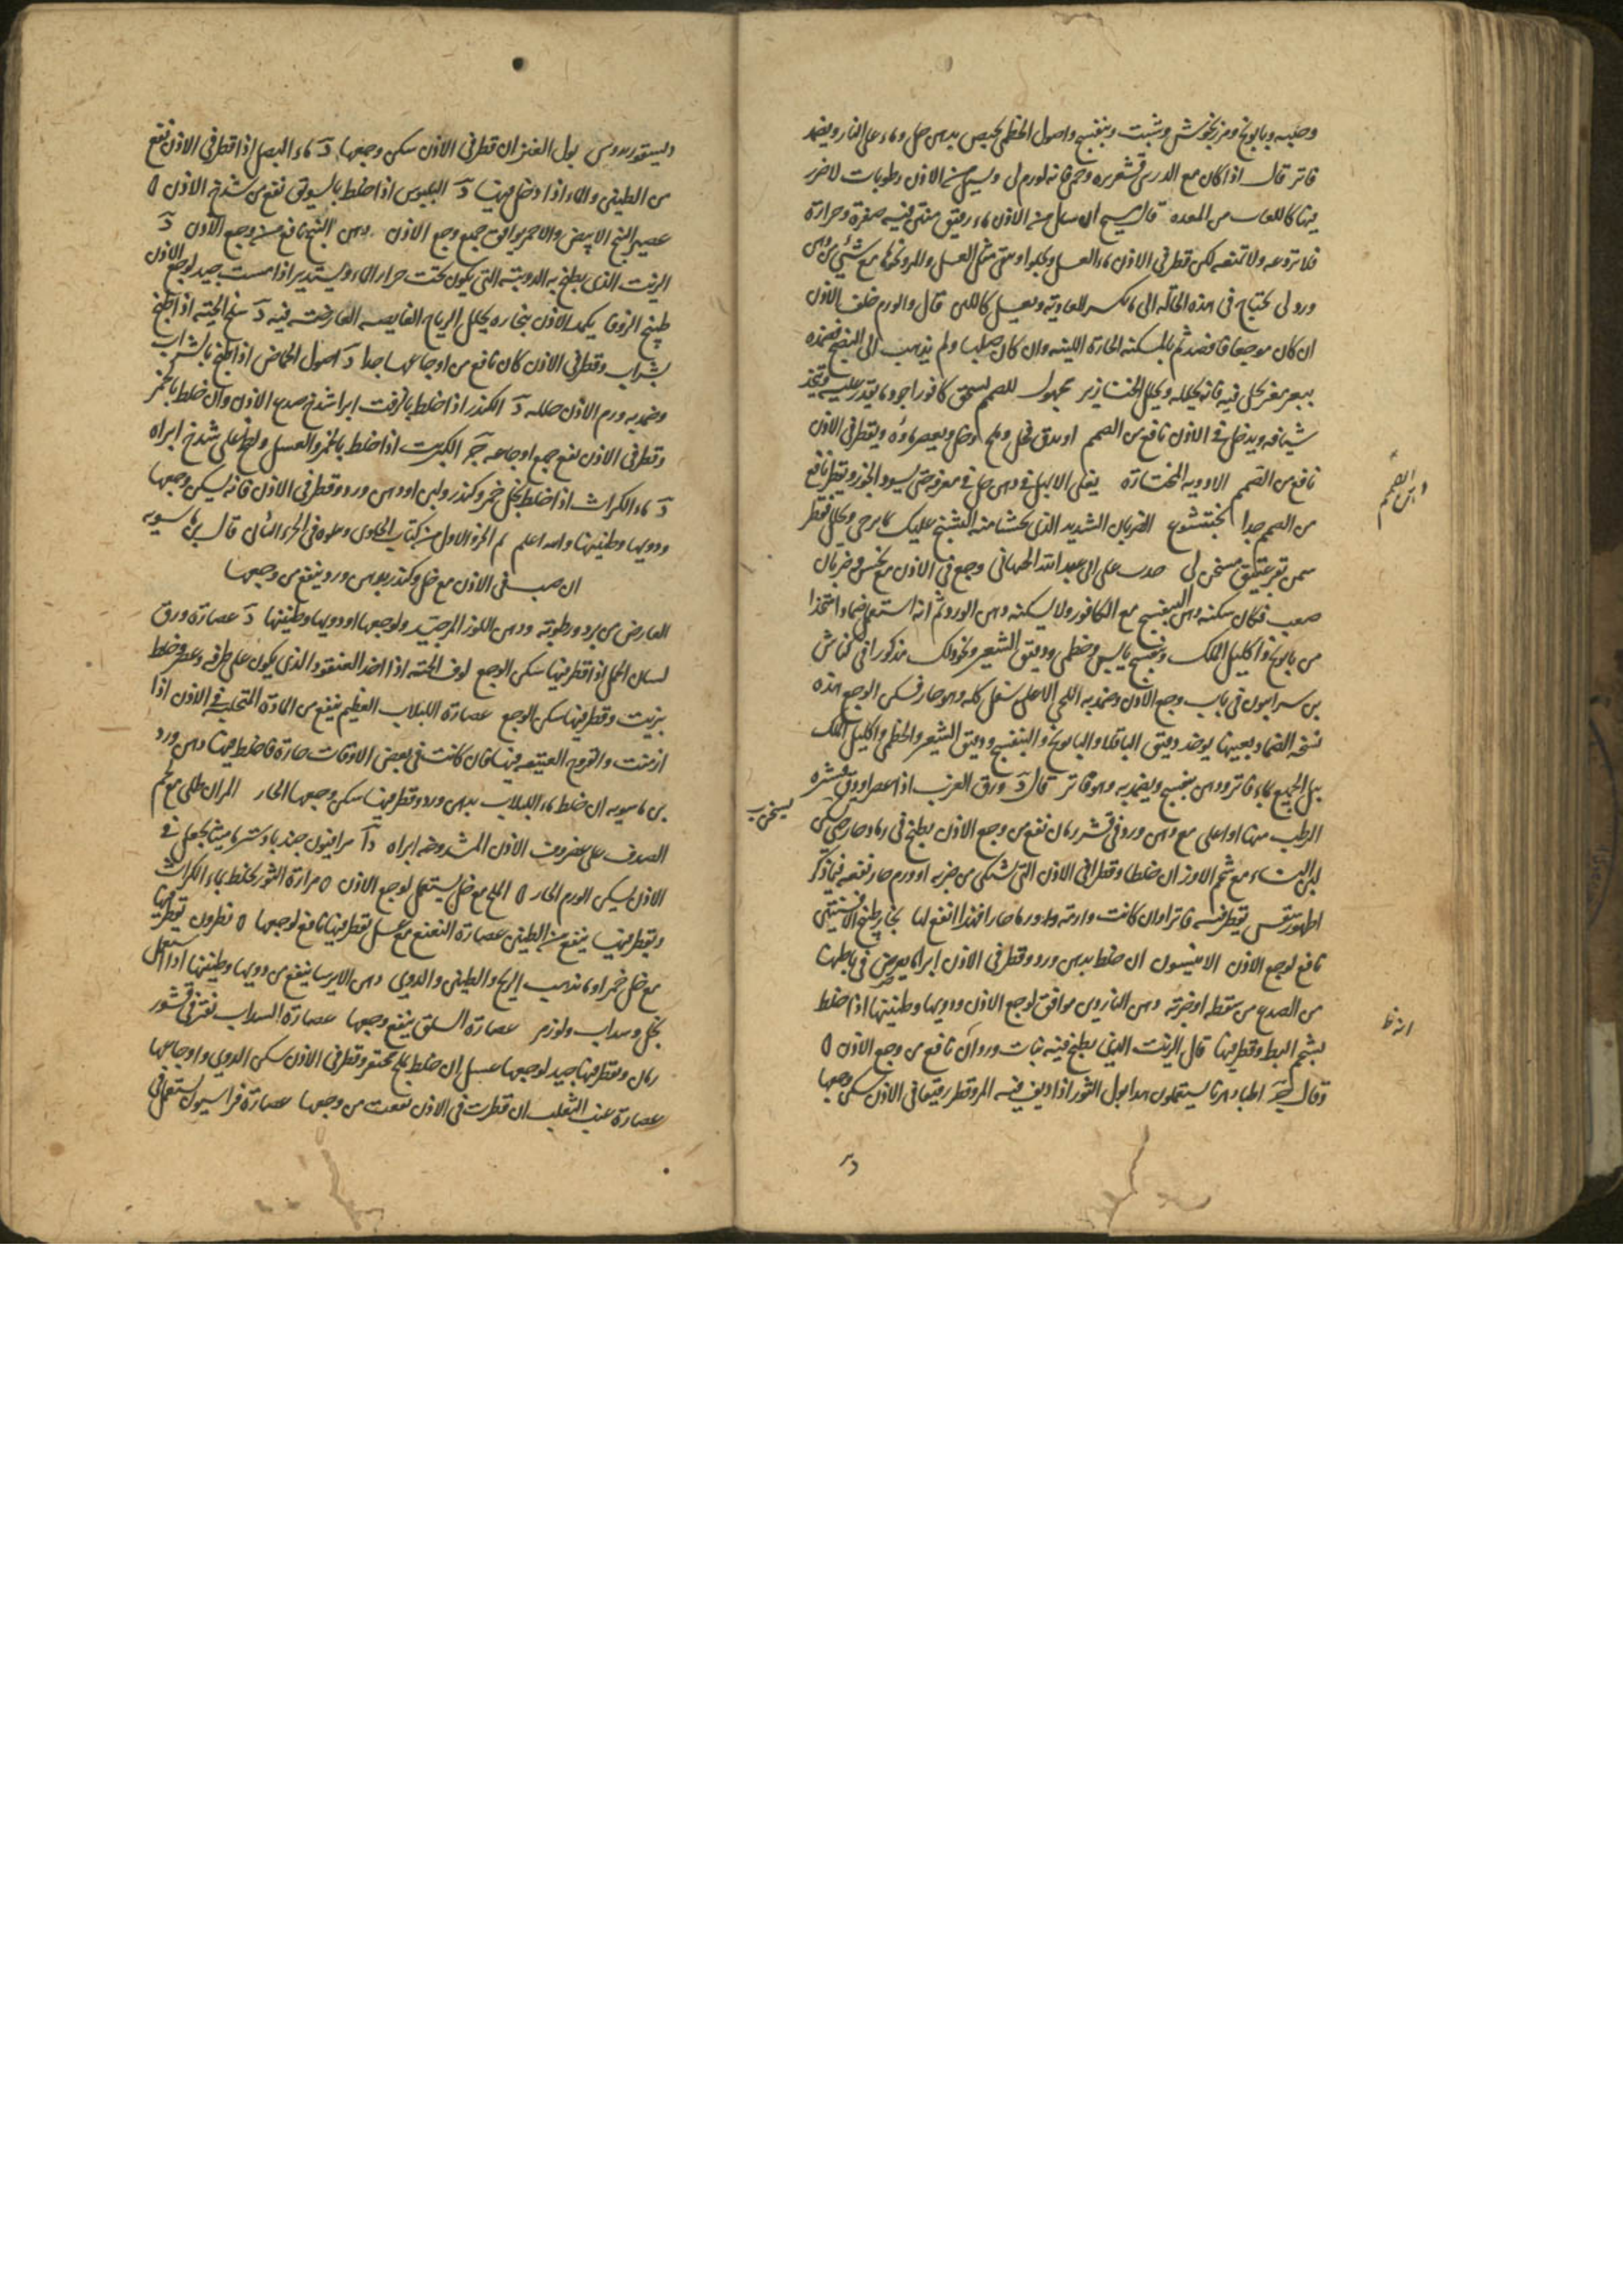 وحلبه وبابونج ومرزنجوش وشبت وبنفسج واصول الخطمى يخبص بدهن حل وماء على النار ويضمد
فاتر قال اذا كان مع الدوى قشعريره وحمى فانه لورم لى ويسيل من الاذن رطوبات لاضرر
فيها كاللعاب من المعده قال مسيح ان سال من الاذن ماء رقيق منتن فيه صفرة وحرارة
فلا تردعه ولا تمنعه لكن قطر فى الاذن ماء العسل
ورد لى يحتاج فى هذه الحاله الى ما يكسر العاديه ويغسل كاللبن قال والورم خلف الاذن
ان كان موجعا فافصد ثم بالمسكنه الحارة اللينه وان كان صلبا ولم يذهب الى النضج فضمده
ببعر معز بخل فيه فانه يحلله ويحلل الخنازير مجهول للصمم يسحق كافور اجود ما يقدر عليه ويتخذ
شيافه ويدخل فى الاذن نافع من الصمم او يدق فجل وملح ويعصر ماؤه ويقطر فى الاذن
نافع من الصمم الادويه المختارة يغلى الابهل فى دهن حل فى مغرفه حتى يسود الجوز ويقطر نافع
من الصمم جدا بختيشوع الضربان الشديد الذى يخشا منه التشنج عليك بما يرخى ويحلل فقطر
سمن بقر عتيق مسخن لى حدث على ابى عبد الله الجيهانى وجع فى الاذن مع نخس وضربان
صعب فكان يسكنه دهن البنفسج مع الكافور ولا يسكنه دهن الورد ثم انه استعمل ضمادا متخذا
من بابونج واكليل الملك وبنفسج يابس وخطمى ودقيق الشعير ونحو ذلك مذكورا فى كناش
بن سرابيون فى باب وجع الاذن وضمد به اللحى الاعلى كله وهو حار فسكن الوجع هذه
نسخه الضماد بعينها يوخذ دقيق الباقلا والبابونج والبنفسج ودقيق الشعير والخطمى واكليل الملك
يبل الجميع بماء فاتر ودهن بنفسج ويضمد به وهو فاتر قال د ورق الغرب اذا عصر او دق قشره
الرطب منها او اغلى مع دهن ورد فى قشر رمان نفع من وجع الاذن يطبخ فى رماد حار حتى يسخن
لبن النساء مع شحم الاوز ان خلطا وقطر فى الاذن التى تشتكى من ضربه او ورم حار نفعه فيما ذكر
يقطر فيه فاترا وان كانت
نافع لوجع الاذن الانيسون ان خلط بدهن ورد وقطر فى الاذن ابرا ما يعرض فى باطنها
من الصدع من سقطه او ضربة دهن الناردين موافق لوجع الاذن ودويها وطنينها اذا خلط
بشحم البط وقطر فيها قال الزيت الذى يطبخ فيه بنات وردان نافع من وجع الاذن ه
وقال ج اطباء دهرنا يستعملون هذا بول الثور اذا اديف فيه المر وقطر رقيقا فى الاذن سكن وجعها
الصمم
يسخن
دى
ديسقوريدوس بول العنز ان قطر فى الاذن سكن وجعها د ماء البصل اذا قطر فى الاذن نفع
من الطنين والماء اذا دخل فيها د البلبوس اذا خلط بالسويق نفع من شدخ الاذن ه
عصير البنج الابيض والاحمر يوافق جميع وجع الاذن دهن البنج نافع من وجع الاذن د
الزيت الذى يطبخ به الدويبة التى يكون تحت جرار الماء ويستدير اذا مست جيد لوجع الاذن
طبيخ الزوفا يكمد الاذن ببخاره يحلل الرياح العارضه فيه د سلخ الحيه اذا طبخ
بشراب وقطر فى الاذن كان نافع من اوجاعها جدا د اصول الحماض اذا طبخ بالشراب
وضمد به ورم الاذن حلله د الكندر اذا خلط بالزفت ابرا شدخ صدع الاذن وان خلط بالخمر
وقطر فى الاذن نفع جميع اوجاعه ج الكبريت اذا خلط بالخمر والعسل ولطخ على شدخ ابراه
د ماء الكراث اذا خلط بخل خمر وكندر ولبن او دهن ورد وقطر فى الاذن فانه يسكن وجعها
ودويها وطنينها والله اعلم تم الجزء الاول من كتاب الحاوى ويتلوه فى الجزء الثانى قال بن ماسويه
ان صب فى الاذن مع خل وكندر بدهن ورد ينفع من وجعها
العارض من برد ورطوبة ودهن اللوز المر جيد لوجعها ودويها وطنينها د عصارة ورق
لسان الحمل اذا قطر فيها سكن الوجع لوف الحيه اذا اخذ العنقود الذى يكون على طرفه وعصر وخلط
بزيت وقطر فيها سكن الوجع عصارة اللبلاب العظيم ينفع من المادة المتحلبه فى الاذن اذا
ازمنت والقروح العتيقه فيها فان كانت فى بعض الاوقات حارة فاخلط فيها دهن ورد
بن ماسويه ان خلط ماء اللبلاب بدهن ورد وقطر فيها سكن وجعها الحار المر ان طلى مع لحم
الصدف على غضروف الاذن المشدوخه ابراه جندبادستر ماميثا يجعل فى
الاذن يسكن الورم الحار ه الملح مع خل يستعمل لوجع الاذن ه مرارة الثور يخلط بماء الكراث
ويقطر فيها ينفع من الطنين عصارة النعنع مع عسل يقطر فيها نافع لوجعها ه نطرون يقطر فيها
مع خل خمر او ماء تذهب الريح والطنين والدوى دهن الايرسا ينفع من دويها وطنينها اذا استعمل
بخل وسداب ولوز مر عصارة السلق ينفع وجعها عصارة السداب تفتر فى قشور
رمان ويقطر فيها جيد لوجعها عسل ان خلط بملح محتفر وقطر فى الاذن سكن الدوى واوجاعها
عصارة عنب الثعلب ان قطرت فى الاذن نفعت من وجعها عصارة فراسيون يستعمل فى